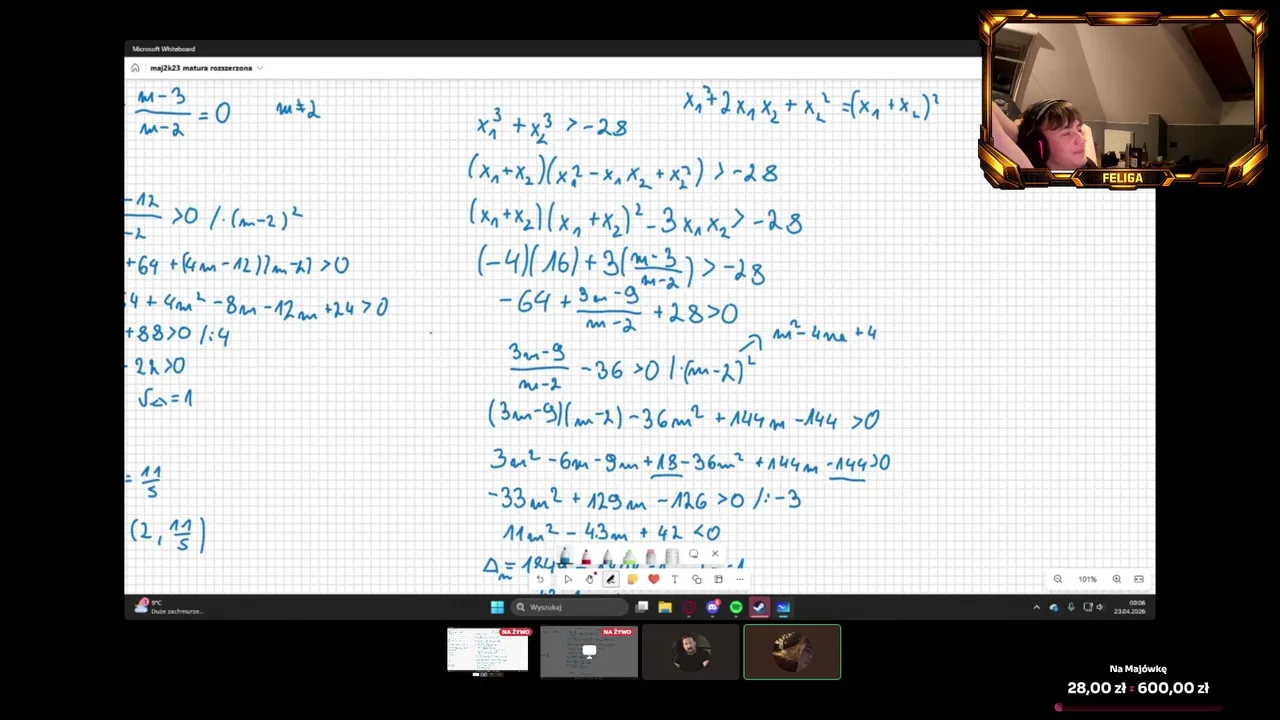 Microsoft Whiteboard
maj2k23 matura rozszerzona
m-3/m-2 = 0 m≠2
-12/-2 >0 /·(m-2)²
+64 +(4m-12)(m-2) >0
4 + 4m² -8m -12m +24 >0
+88>0 /:4
-22>0
√Δ = 1
= 11/5
(2, 11/5)
x₁³ + 2x₁x₂ + x₂² = (x₁ + x₂)²
x₁³ + x₂³ > -28
(x₁+x₂)(x₁² - x₁x₂ + x₂²) > -28
(x₁+x₂)(x₁+x₂)² - 3x₁x₂ > -28
(-4)(16) + 3(m-3/m-2) > -28
-64 + 3m-9/m-2 + 28 > 0
m² - 4m + 4
3m-9/m-2 - 36 > 0 /·(m-2)²
(3m-9)(m-2) - 36m² + 144m - 144 > 0
3m² - 6m - 9m + 18 - 36m² + 144m - 144 > 0
-33m² + 129m - 126 > 0 /:-3
11m² - 43m + 42 < 0
Δm = 184
101%
9°C
Duże zachmurze...
Wyszukaj
00:06
23.04.2026
NA ŻYWO
NA ŻYWO
FELIGA
Na Majówkę
28,00 zł z 600,00 zł